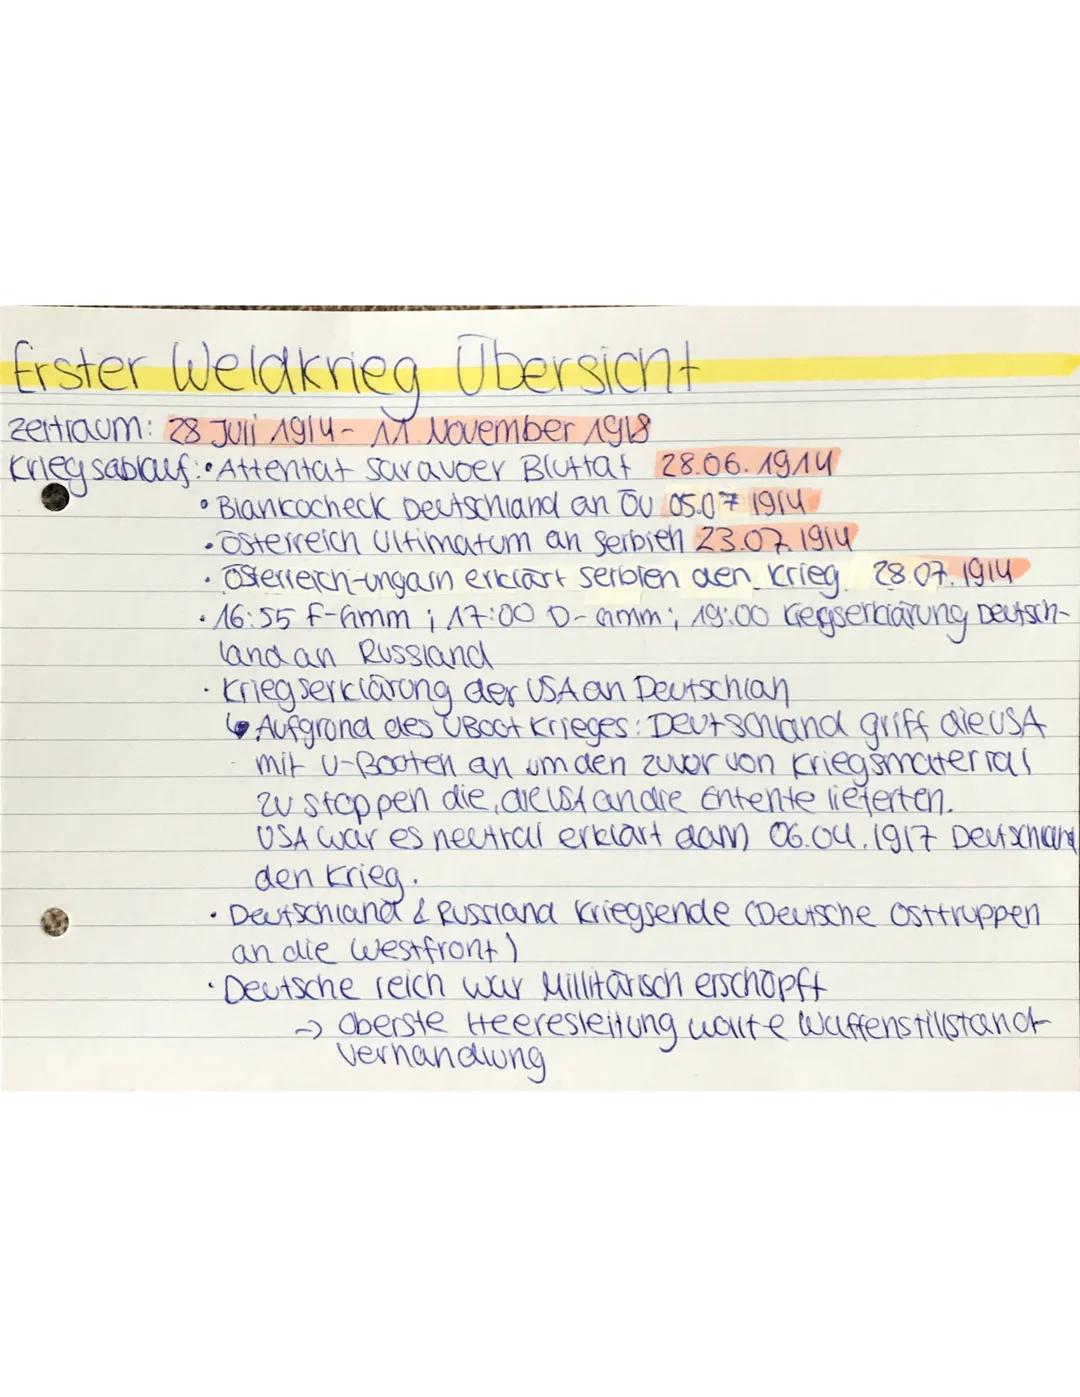 Erster Weldkrieg Übersicht
Zeitraum: 28 Juli 1914 - 11. November 1918
Kriegsablauf: • Attentat Saravoer Bluttat 28.06.1914
• Blankocheck Deutschland an ÖU 05.07 1914
• Österreich Ultimatum an Serbien 23.07.1914
• Österreich-ungarn erklärt Serbien den Krieg 28.07.1914
• 16:55 F-Amm ; 17:00 D-Amm ; 19:00 Kiegserklärung Deutsch-
land an Russland
• Kriegserklärung der USA an Deutschlan
↳ Aufgrund des UBoot Krieges: Deutschland griff die USA
mit U-Booten an um den zuvor von Kriegsmaterial
zu stoppen die, die USA an die Entente lieferten.
USA war es neutral erklärt dann 06.04.1917 Deutschland
den Krieg.
• Deutschland & Russland Kriegsende (Deutsche Osttruppen
an die Westfront)
• Deutsche reich war Millitärisch erschöpft
→ Oberste Heeresleitung wollte Waffenstillstand
verhandlung